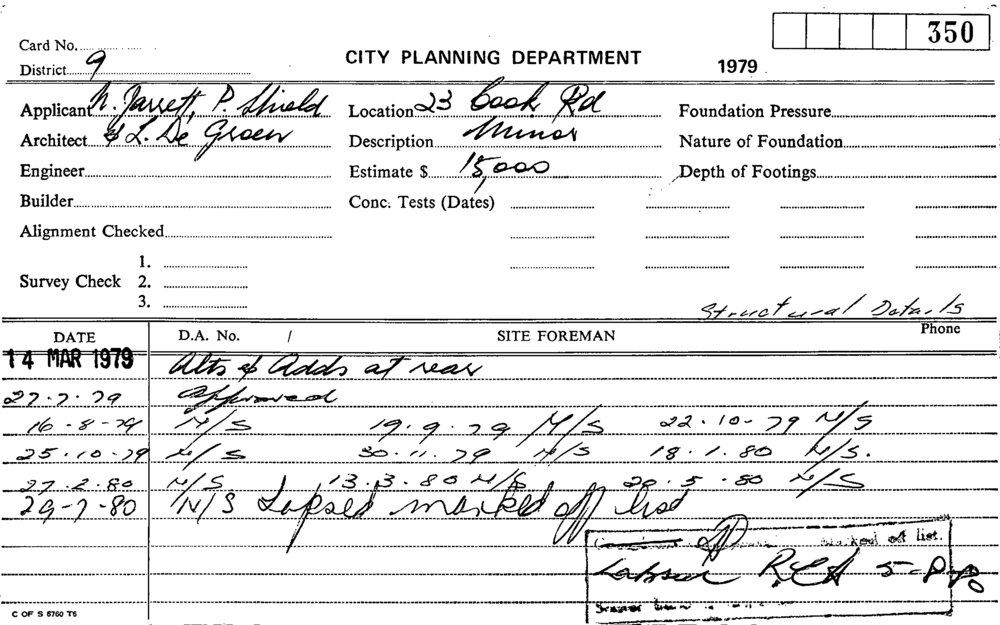 350
Card No.
District 9
CITY PLANNING DEPARTMENT
1979
Applicant N. Jarrett, P. Shield
Location 23 Cook Rd
Foundation Pressure
Architect & L. De Groen
Description Minor
Nature of Foundation
Engineer
Estimate $ 15,000
Depth of Footings
Builder
Conc. Tests (Dates)
Alignment Checked
Survey Check
1.
2.
3.
Structural Details
DATE D.A. No. / SITE FOREMAN Phone
14 MAR 1979 Alts & Adds at rear
27-7-79 Approved
16-8-79 N/S 19.9.79 N/S 22.10.79 N/S
25.10.79 N/S 30.11.79 N/S 18.1.80 N/S.
27.2.80 N/S 13.3.80 N/S 20.5.80 N/S
29-7-80 N/S Lapsed marked off list
marked off list.
5-8-80
C OF S 5760 T6